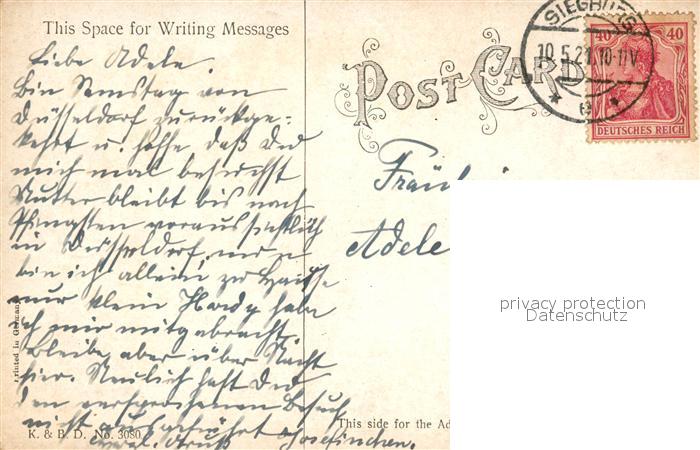 This Space for Writing Messages
Liebe Adele.
Bin Samstag von
Düsseldorf zurückge-
kehrt u. hoffe daß Du
mich mal besuchst
Mutter bleibt bis nach
Pfingsten voraussichtlich
in Düsseldorf, nun
bin ich allein zu Hause
nur klein Hardy habe
ich mir mitgebracht,
bleibe aber über Nacht
hier. Neulich hast Du
den versprochenen Besuch
nicht ausgeführt
Gruß Josefinchen.
Printed in Germany
K. & B. D. No. 3080
POST CARD
SIEGBURG
10.5.21.10-11V.
* e *
40 40
DEUTSCHES REICH
Fräul
Adele
privacy protection
Datenschutz
This side for the Ad